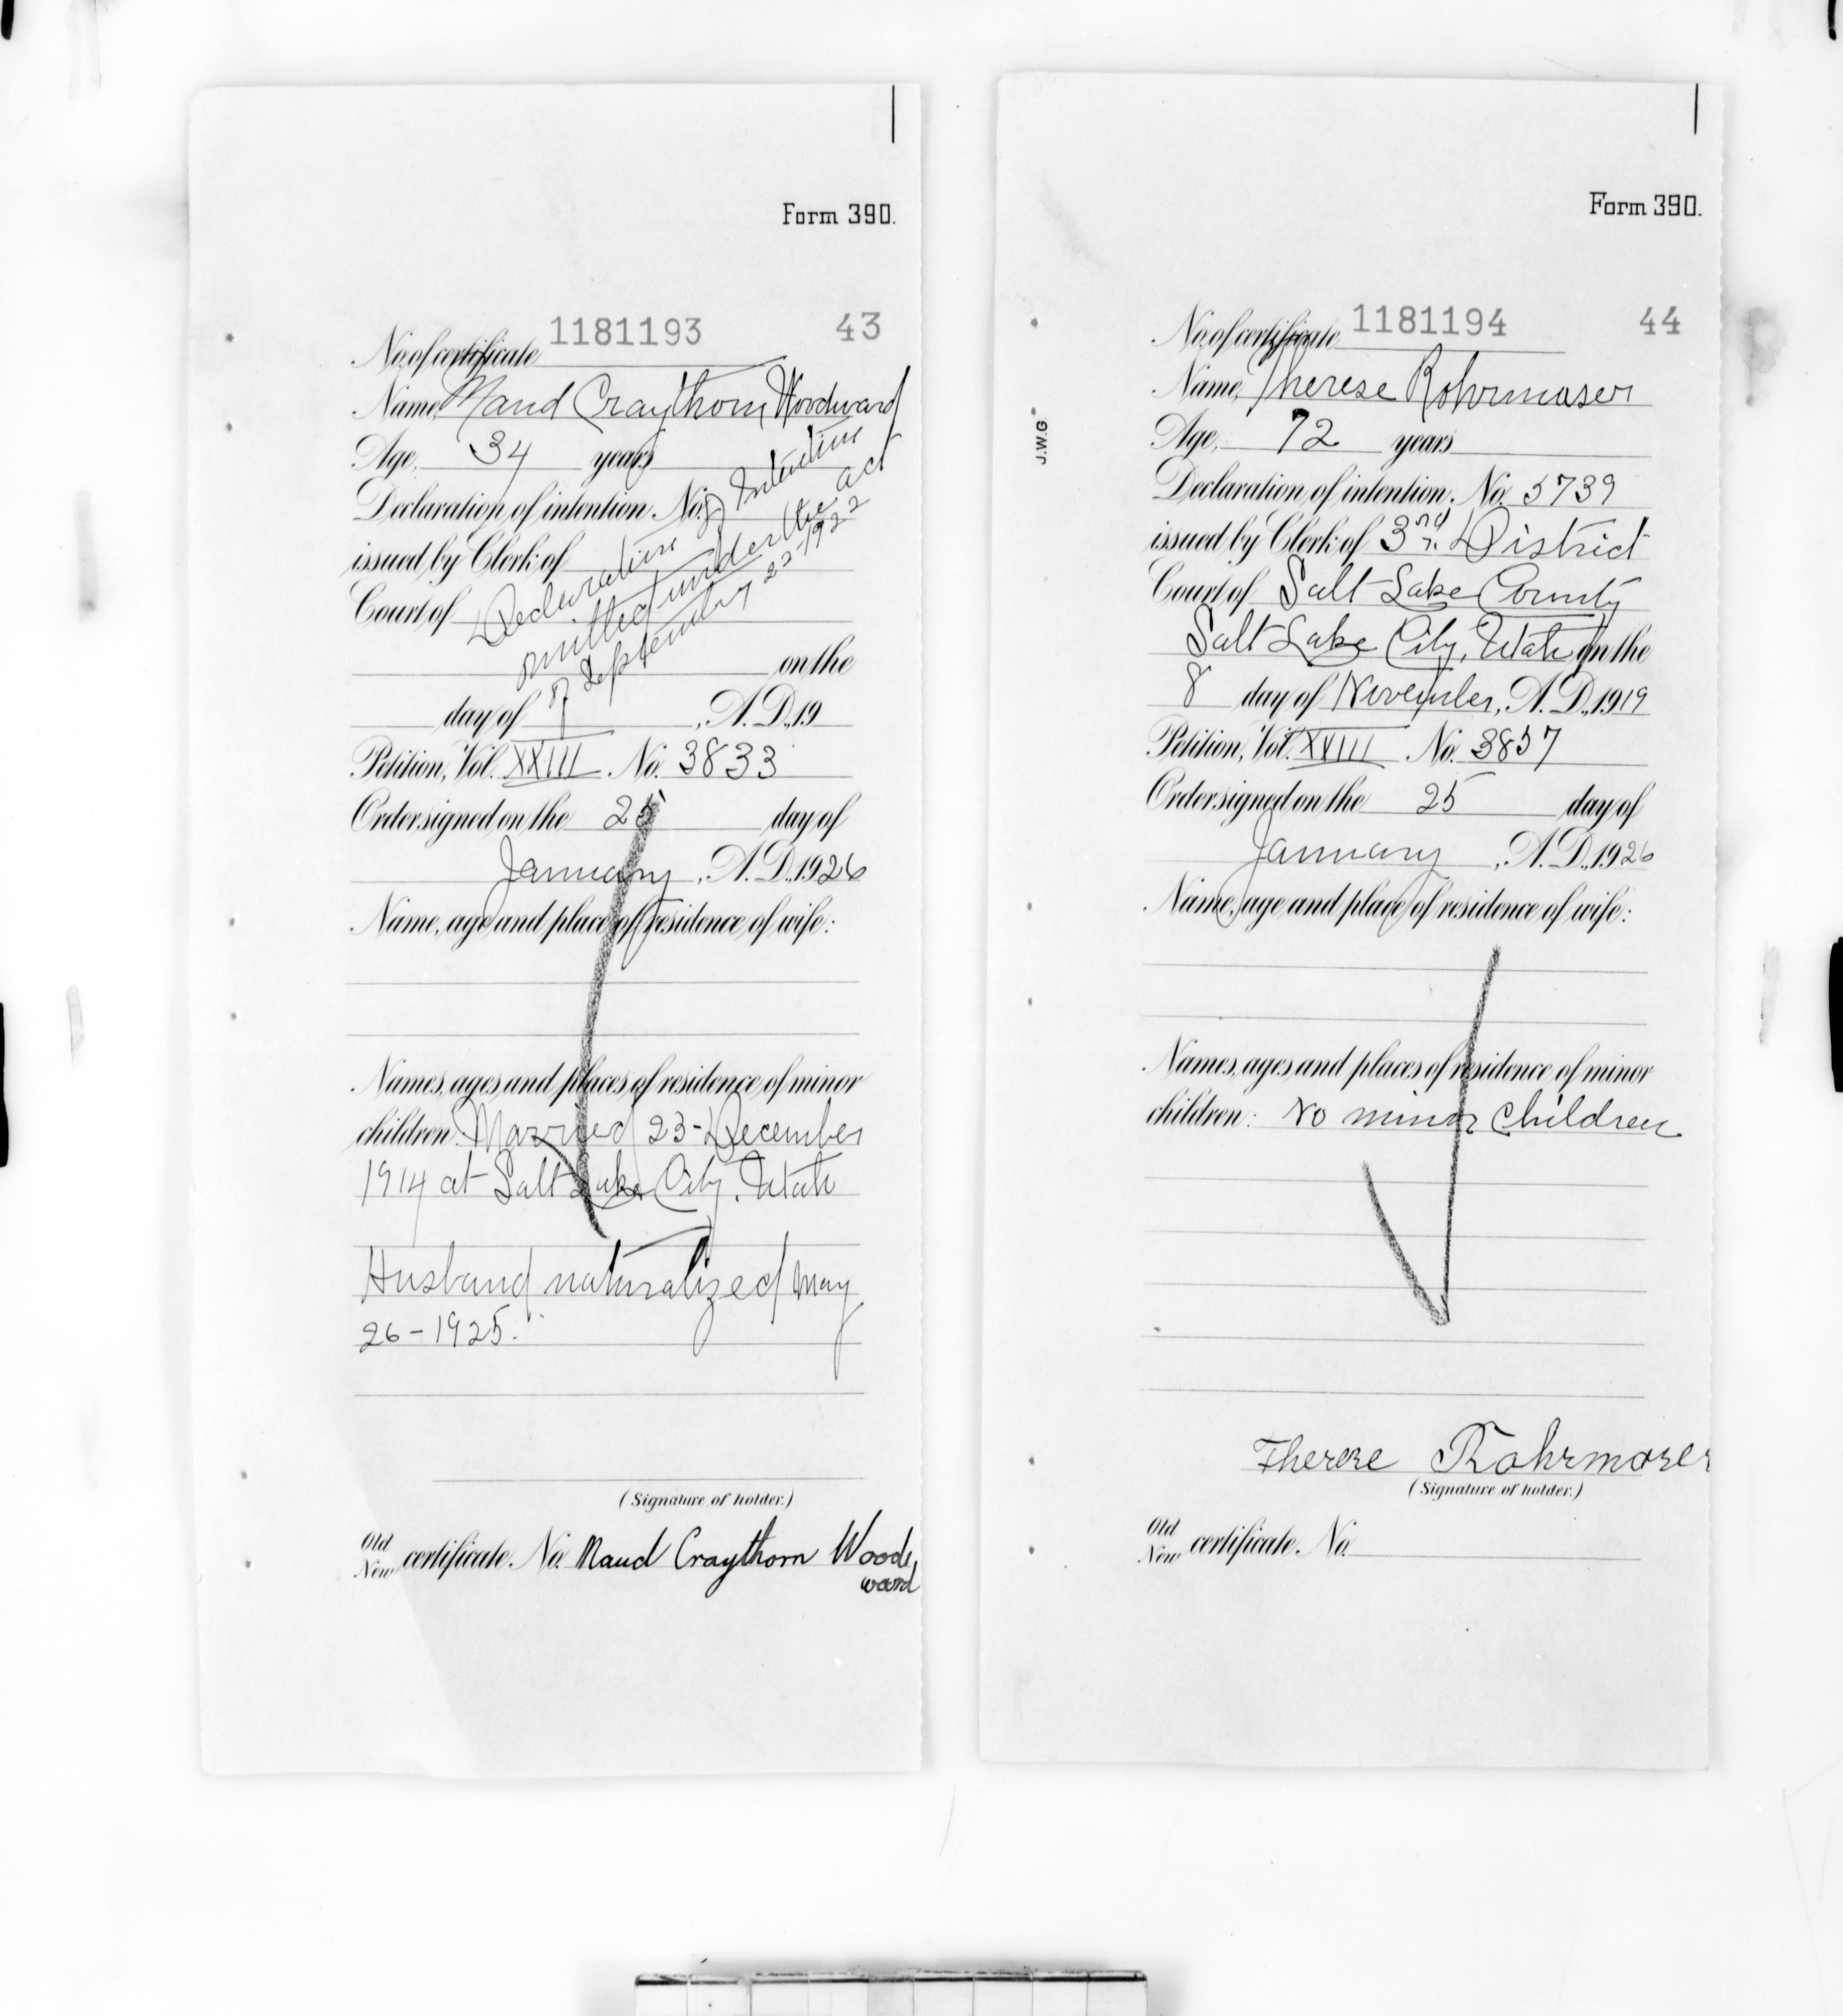 Form 390.
1181193 43
No. of certificate
Name, Maud Craythorn Woodward
Age, 34 years
Declaration of intention No.
issued by Clerk of
Court of
Declaration of Intention
omitted under the act
of September 22-1922
on the
day of , A.D., 19
Petition, Vol. XXIII No. 3833
Order signed on the 25 day of
January, A.D., 1926
Name, age and place of residence of wife:
Names, ages and places of residence of minor
children: Married 23-December
1914 at Salt Lake City, Utah
Husband naturalized May
26-1925.
(Signature of holder.)
Old
New certificate No. Maud Craythorn Wood
ward
Form 390.
J.W.G.
1181194 44
No. of certificate
Name, Therese Rohrmoser
Age, 72 years
Declaration of intention No. 5739
issued by Clerk of 3rd District
Court of Salt Lake County
Salt Lake City, Utah on the
8 day of November, A.D., 1919
Petition, Vol. XXIII No. 3857
Order signed on the 25 day of
January, A.D., 1926
Name, age and place of residence of wife:
Names, ages and places of residence of minor
children: No minor children
Therese Rohrmoser
(Signature of holder.)
Old
New certificate No.